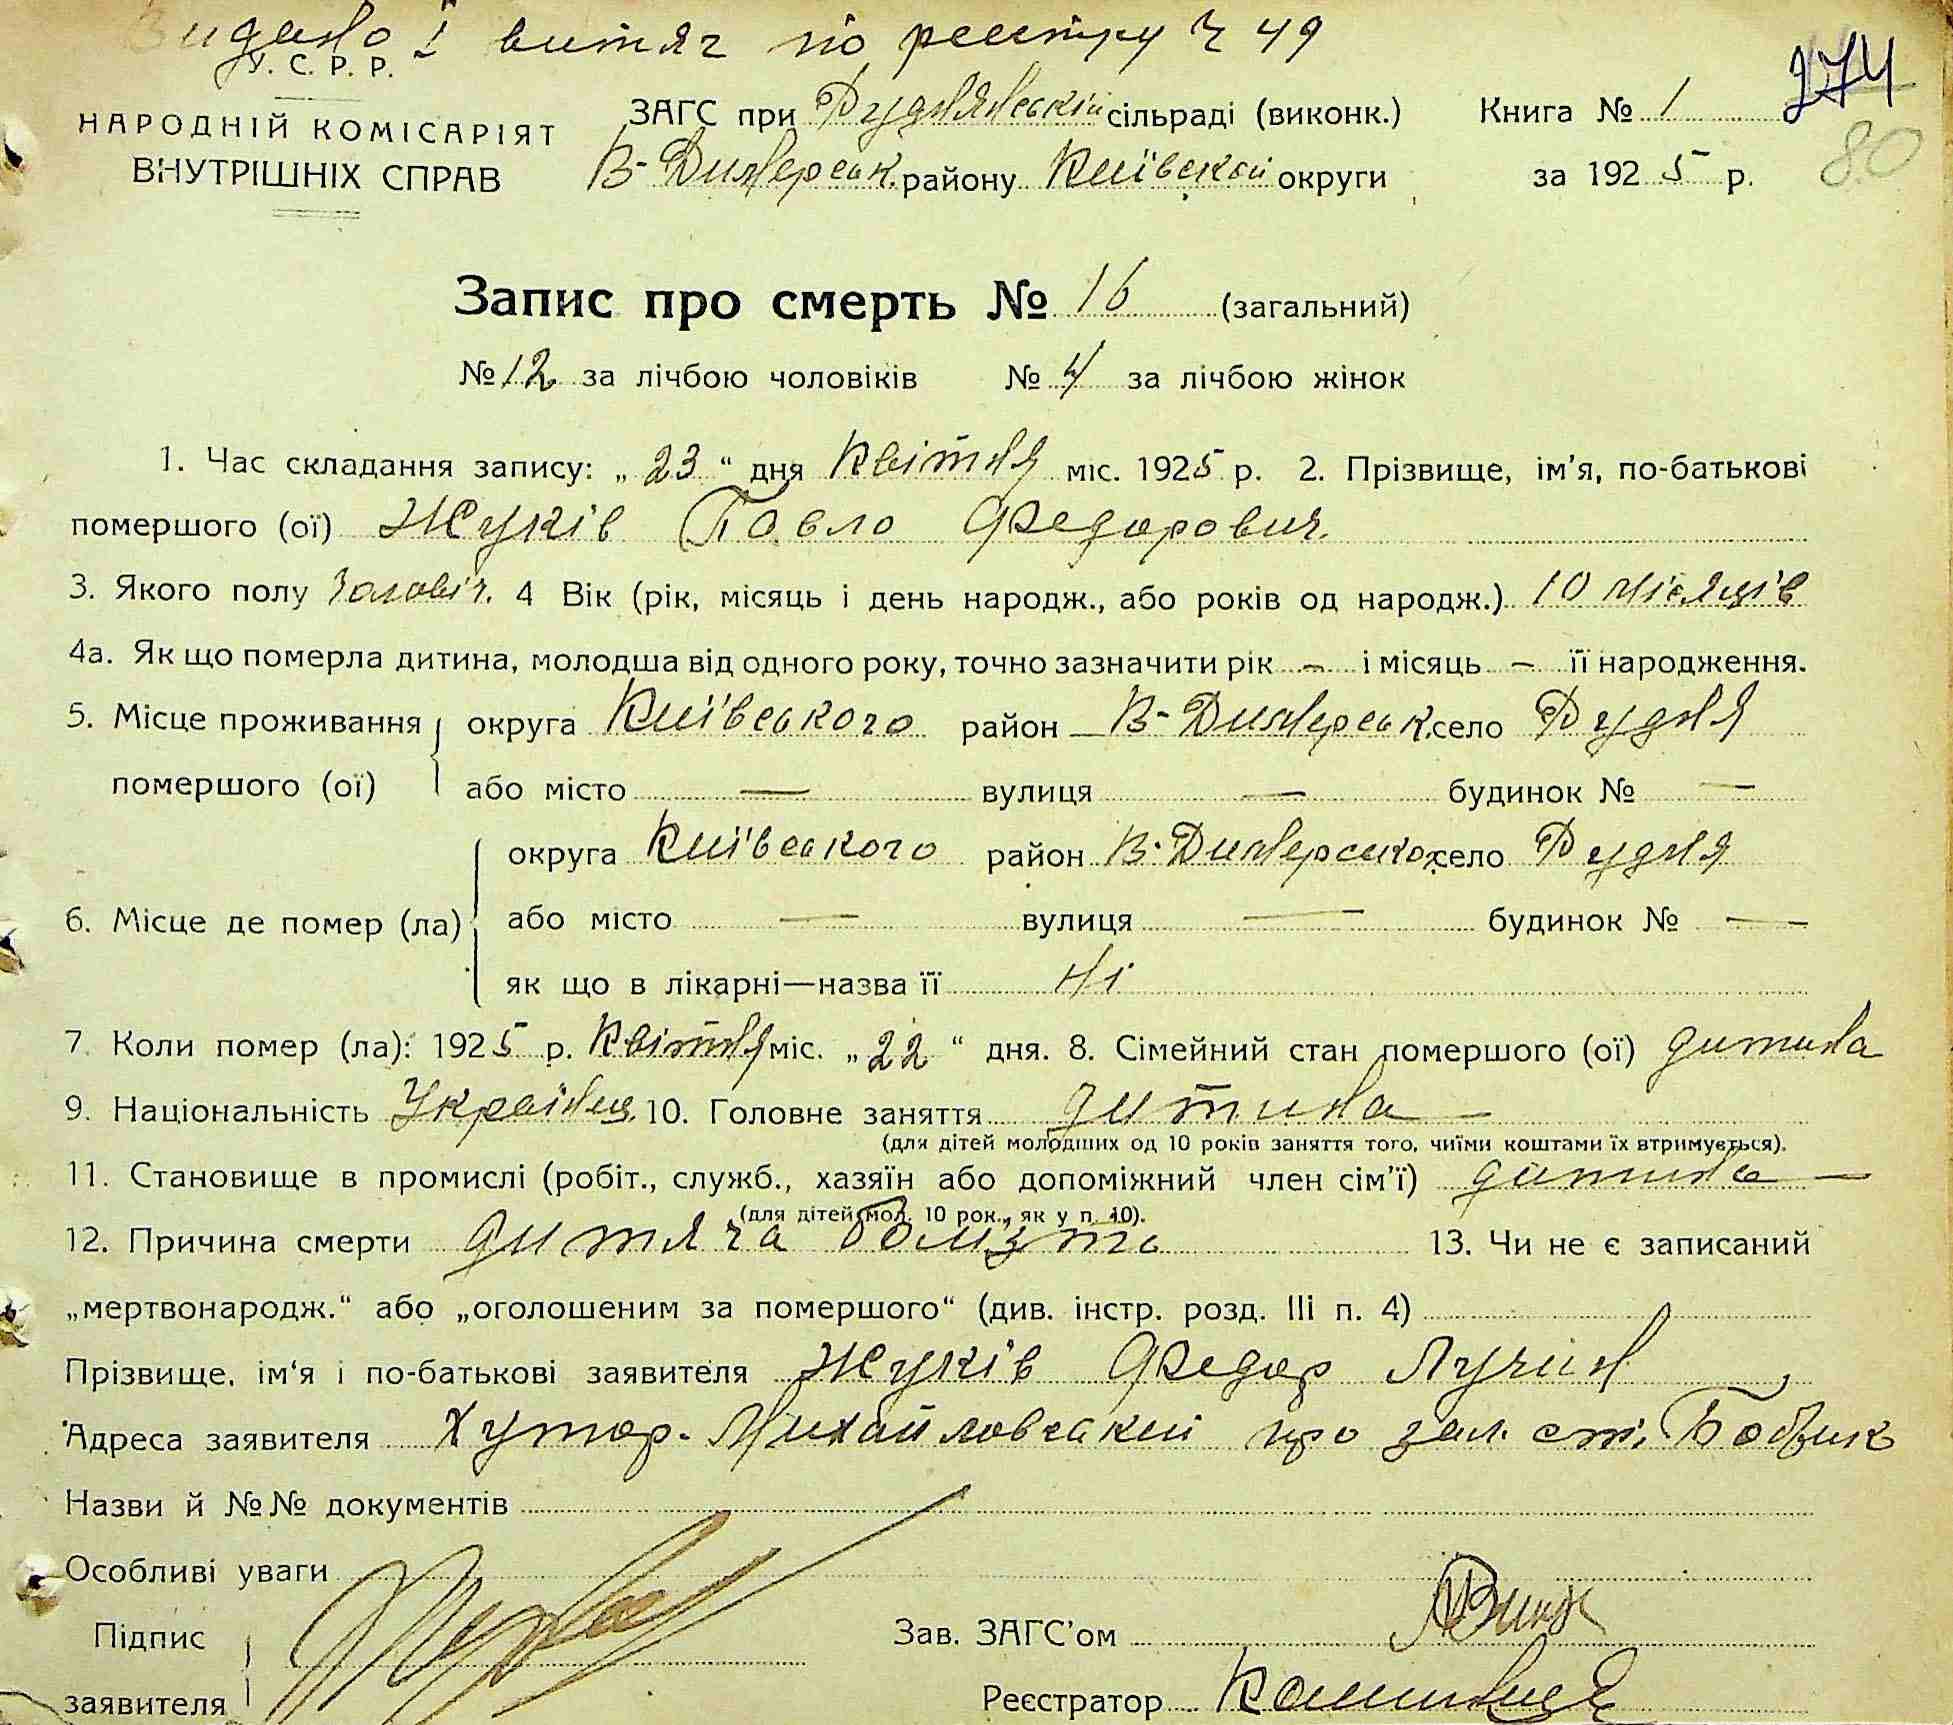 Видано і витяг по реєстру ч 49
У. С. Р. Р.
274
НАРОДНІЙ КОМІСАРІЯТ
ВНУТРІШНІХ СПРАВ
ЗАГС при Руднянській сільраді (виконк.) Книга № 1
В-Димерськ. району Київської округи за 1925 р.
80
Запис про смерть № 16 (загальний)
№ 12 за лічбою чоловіків № 4 за лічбою жінок
1. Час складання запису: „23“ дня Квітня міс. 1925 р. 2. Прізвище, ім'я, по-батькові
помершого (ої) Жуків Павло Федорович.
3. Якого полу Чоловіч. 4 Вік (рік, місяць і день народж., або років од народж.) 10 місяців
4а. Як що померла дитина, молодша від одного року, точно зазначити рік – і місяць – її народження.
5. Місце проживання округа Київського район В-Димерськ. село Рудня
помершого (ої) або місто — вулиця — будинок № —
округа Київського район В-Димерського село Рудня
6. Місце де помер (ла) або місто — вулиця — будинок № —
як що в лікарні—назва її Ні
7. Коли помер (ла): 1925 р. Квітня міс. „22“ дня. 8. Сімейний стан помершого (ої) дитина
9. Національність Українец. 10. Головне заняття дитина —
(для дітей молодших од 10 років заняття того, чиїми коштами їх втримується).
11. Становище в промислі (робіт., служб., хазяїн або допоміжний член сім'ї) дитина —
(для дітей мол. 10 рок., як у п. 10).
12. Причина смерти дитяча болизть 13. Чи не є записаний
„мертвонародж.“ або „оголошеним за помершого“ (див. інстр. розд. III п. 4)
Прізвище, ім'я і по-батькові заявителя Жуків Федор Лучин
Адреса заявителя Хутор. Михайловський про зал. ст. Бобрик
Назви й №№ документів
Особливі уваги
Підпис
Зав. ЗАГС'ом
заявителя
Реєстратор